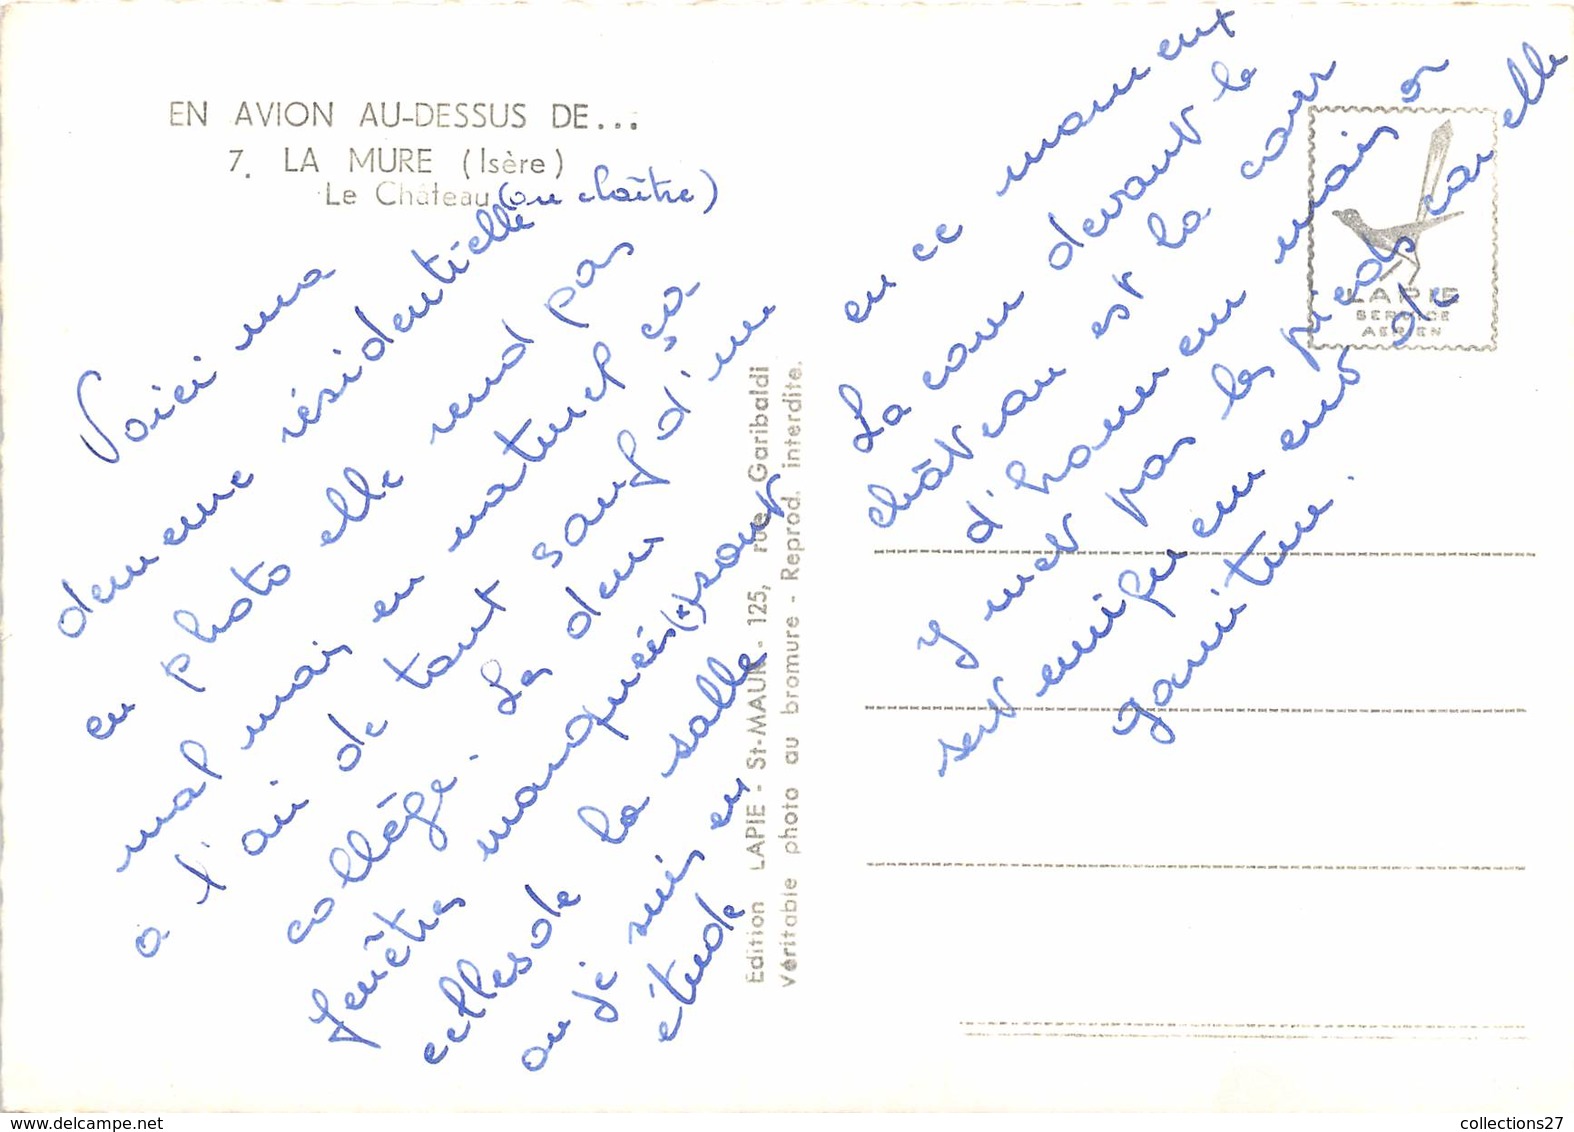 EN AVION AU-DESSUS DE...
7. LA MURE (Isère)
Le Château (ou cloître)
Voici ma
demeure résidentielle
en photo elle rend pas
mal mais en naturel ça
a l'air de tout sauf d'un
collége. Les deux
fenêtres marquées(+) sont
celles de la salle
ou je suis en
étude
en ce moment
La cour devant le
château est la cour
d'honneur mais on
y met pas les pieds car elle
sert uniquement de
garniture.
Edition LAPIE - St-MAUR - 125, rue Garibaldi
Véritable photo au bromure - Reprod. interdite.
LAPIE
SERVICE
AERIEN
www.delcampe.net
collections27